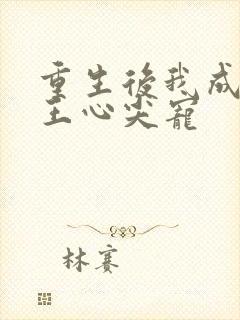 重生後我成
王心尖寵
林賽